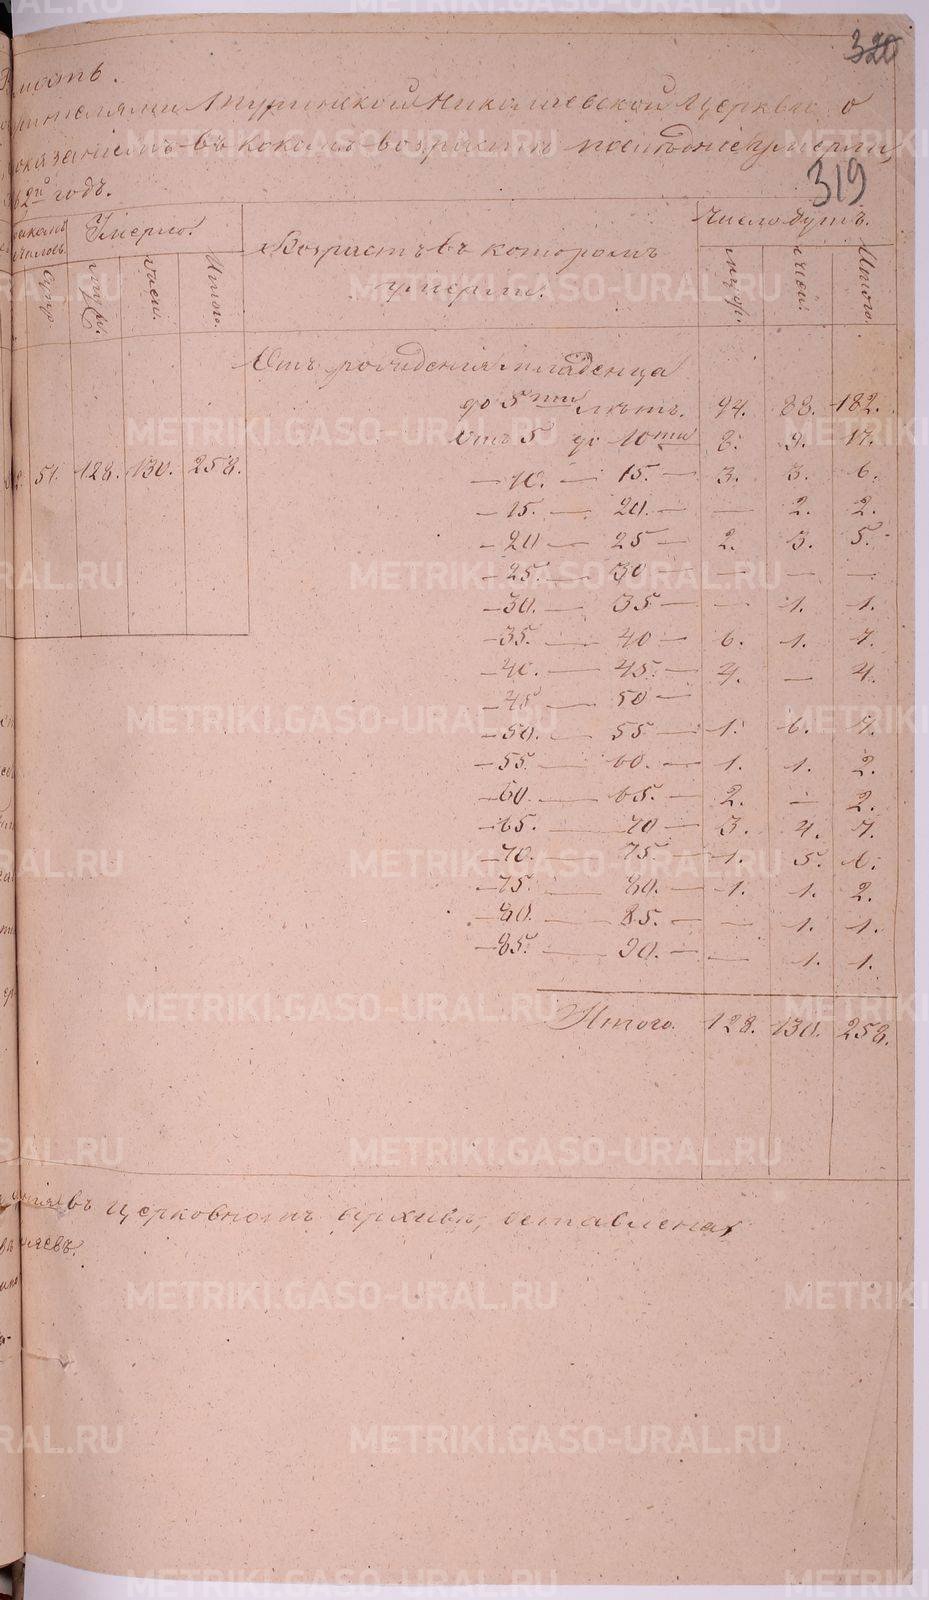 320
мость.
Туринской Николаевской Церкви о
показанiемъ въ какомъ возрастѣ последнiе умерли,
319
62го годъ.
браковъ Умерло. Возрастъ въ которомъ Число душъ.
умерли.
супр. муж. жен. Итого. муж. жен. Итого.
Отъ рожденiя младенца
до 5ти лѣтъ. 94. 88. 182.
Отъ 5 до 10ти 8. 9. 17.
51. 128. 130. 258.
— 10. — 15. — 3. 3. 6.
— 15. — 20. — — 2. 2.
— 20 — 25 — 2. 3. 5.
— 25. — 30 — — — —
— 30. — 35 — — 1. 1.
— 35. — 40 — 6. 1. 7.
— 40. — 45. — 4. — 4.
— 45 — 50 —
— 50. — 55 — 1. 6. 7.
— 55. — 60. — 1. 1. 2.
— 60. — 65. — 2. — 2.
— 65. — 70 — 3. 4. 7.
— 70. — 75. — 1. 5. 6.
— 75. — 80. — 1. 1. 2.
— 80. — 85. — — 1. 1.
— 85. — 90. — — 1. 1.
Итого. 128. 130. 258.
въ церковномъ архивѣ, оставлена
METRIKI.GASO-URAL.RU